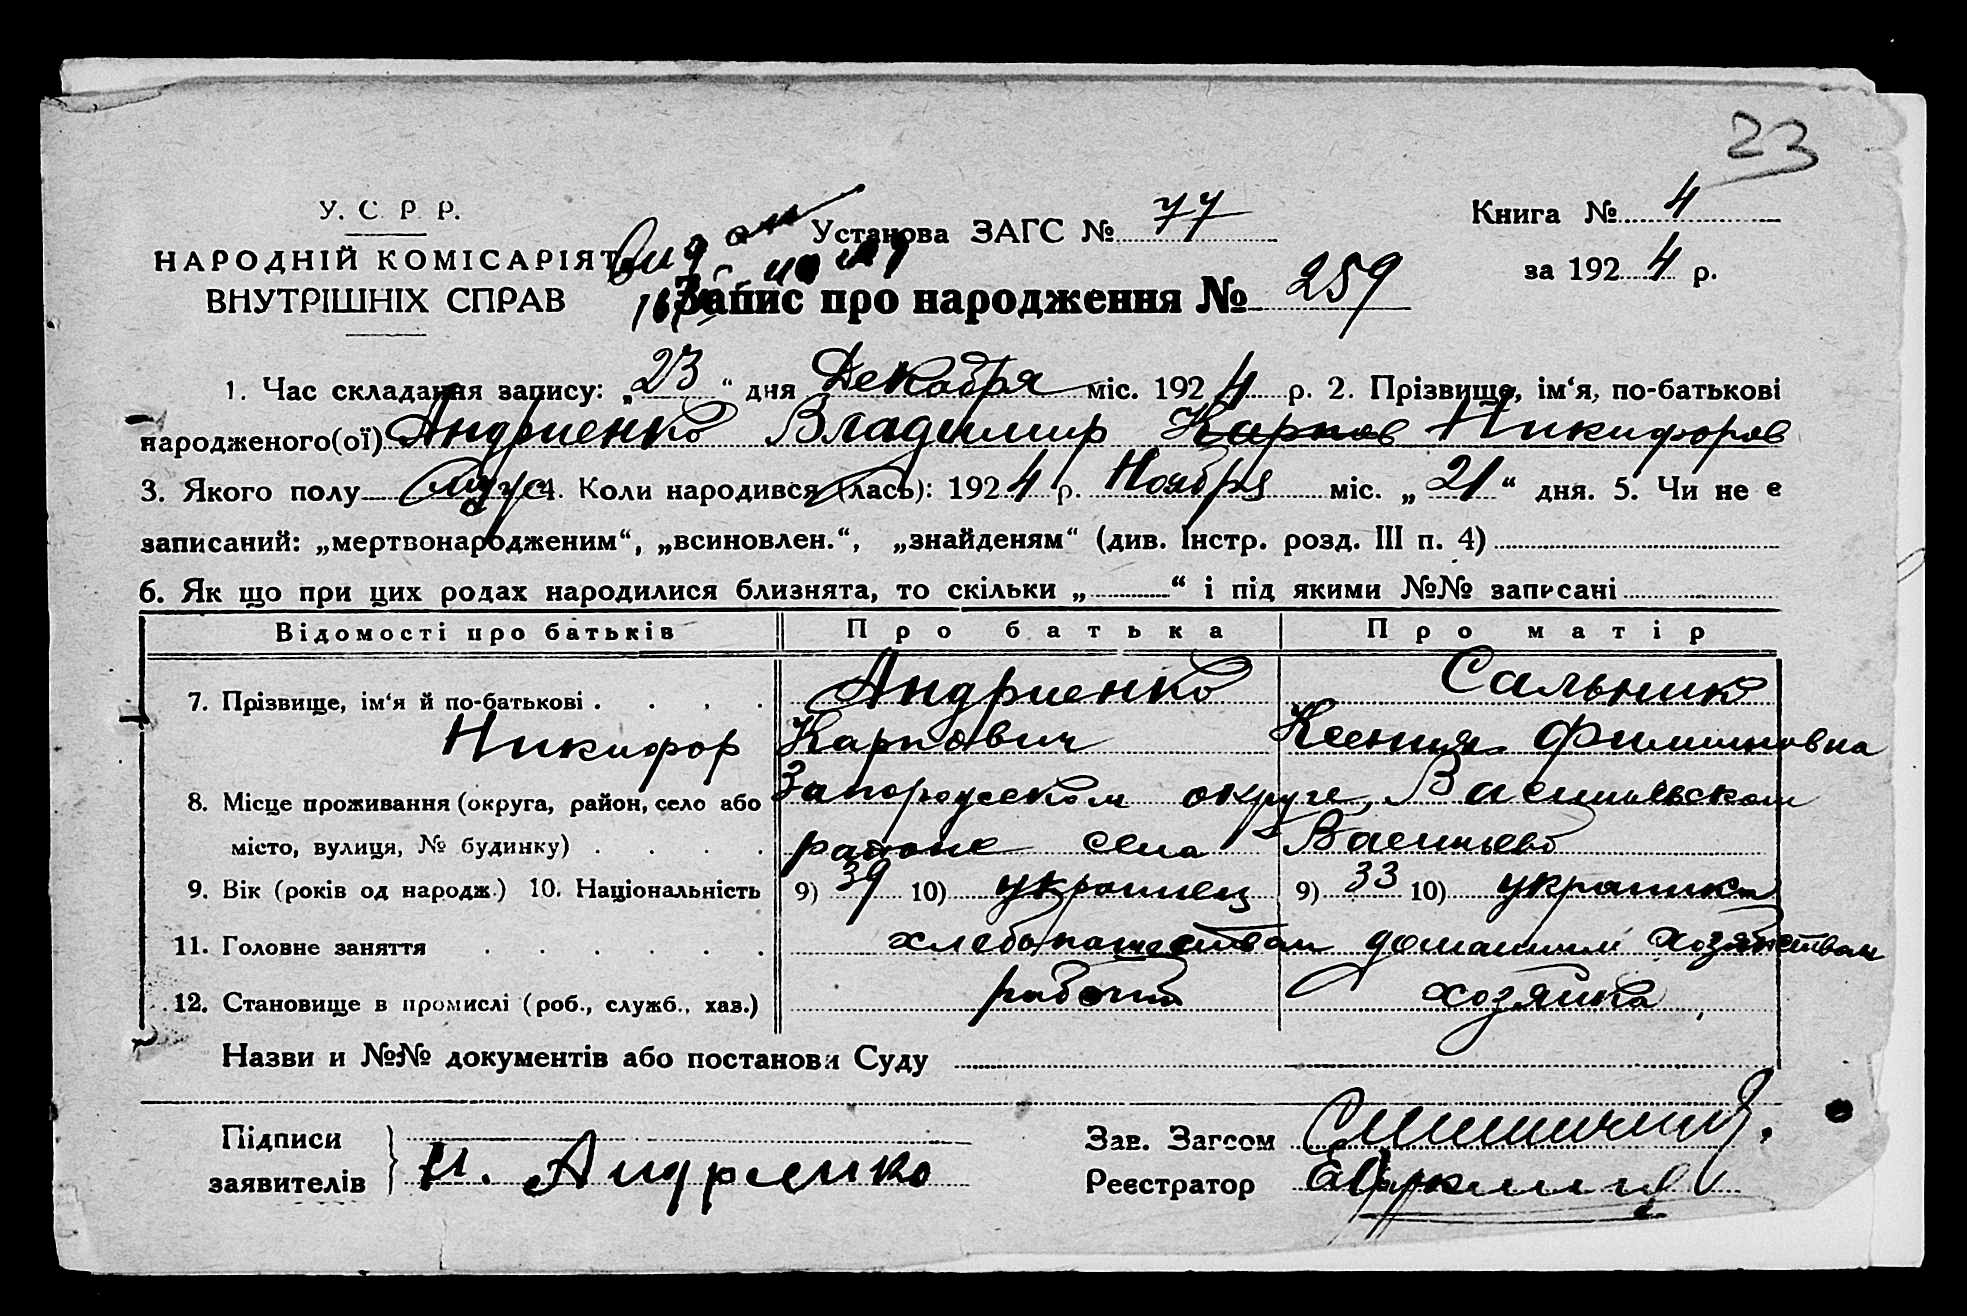 23
У. С. Р. Р.
НАРОДНІЙ КОМІСАРІЯТ
ВНУТРІШНІХ СПРАВ
Установа ЗАГС № 77
Книга № 4
за 1924 р.
Запис про народження № 259
1. Час складання запису: „23“ дня Декабря міс. 1924 р. 2. Прізвище, ім‘я, по-батькові
народженого(ої) Андриенко Владимир Карпов Никифоров
3. Якого полу муж 4. Коли народився (лась): 1924 р. Ноября міс. „21“ дня. 5. Чи не є
записаний: „мертвонародженим“, „всиновлен.“, „знайденям“ (див. Інстр. розд. III п. 4)
6. Як що при цих родах народилися близнята, то скільки „ “ і під якими №№ записані
Відомості про батьків Про батька Про матір
7. Прізвище, ім‘я й по-батькові . . . . Андриенко Сальник
Никифор Карпович Ксения Филиповна
8. Місце проживання (округа, район, село або Запорожском округе, Васильевском
місто, вулиця, № будинку) . . . . районе села Васильево
9. Вік (років од народж.) 10. Національність 9) 39 10) украинец 9) 33 10) украинка
11. Головне заняття . . . . . . хлебопашеством домашним хозяйством
12. Становище в промислі (роб., служб., хаз.) хозяйка
Назви и №№ документів або постанови Суду
Підписи
заявителів } Н. Андриенко
Зав. Загсом
Реєстратор